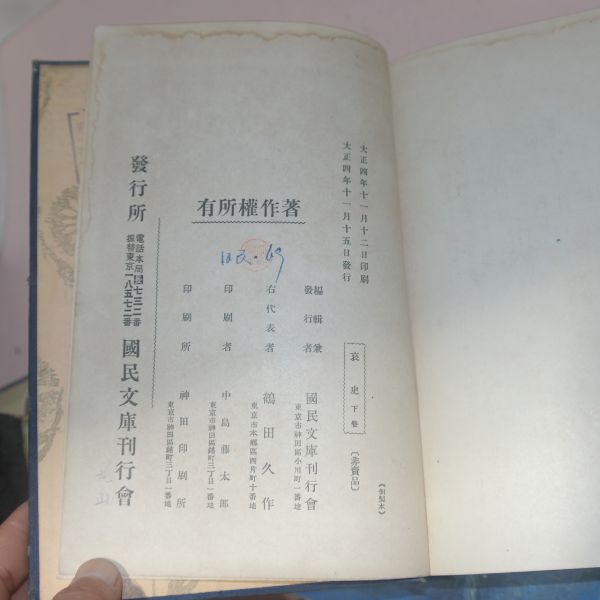 大正四年十一月十二日印刷
大正四年十一月十五日發行
哀史下卷
〔非賣品〕
著作權所有
編輯兼
發行者
國民文庫刊行會
東京市神田區小川町一番地
右代表者
鶴田久作
東京市本鄕區西片町十番地
印刷者
中島藤太郎
東京市神田區錦町三丁目一番地
印刷所
神田印刷所
東京市神田區錦町三丁目一番地
發行所
國民文庫刊行會
振替東京一八五七二番